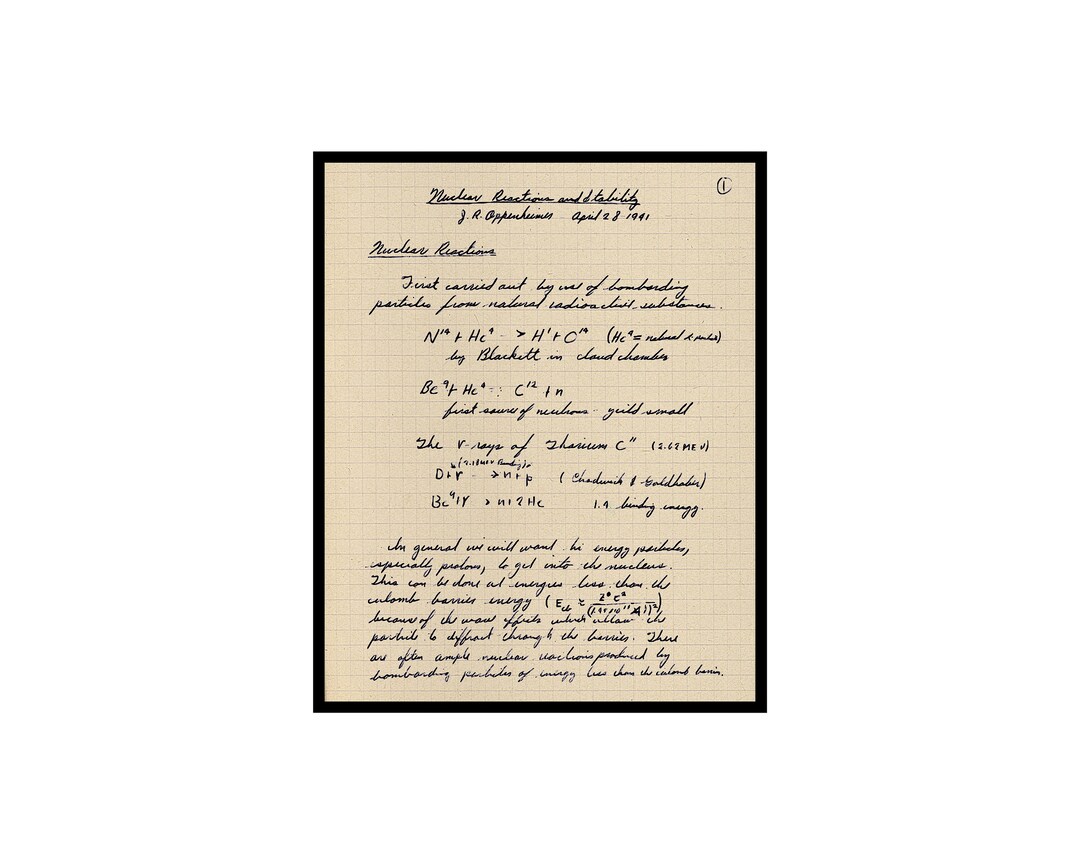 ①
Nuclear Reactions and Stability
J. R. Oppenheimer April 28 1941
Nuclear Reactions
First carried out by use of bombarding
particles from natural radioactive substances.
N¹⁴ + He⁴ → H¹ + O¹⁷ (He⁴ = natural α-particle)
by Blackett in cloud chamber
Be⁹ + He⁴ → C¹² + n
first source of neutrons - yield small
The γ-rays of Thorium C" (2.62 MEV)
(2.18 MEV Binding)
D + γ → n + p (Chadwick & Goldhaber)
Be⁹ + γ → n + 2He binding energy.
In general we will want hi energy particles,
especially protons, to get into the nucleus.
This can be done at energies less than the
culomb barrier energy (
because of the wave effects which allow the
particle to diffract through the barrier. There
are often ample nuclear reactions produced by
bombarding particles of energy less than the culomb barrier.